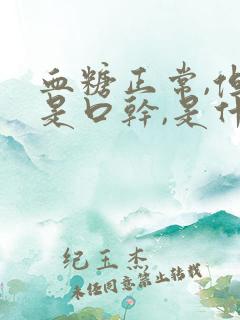 血糖正常,
是口幹,是什
纪玉杰
未经同意禁止转载